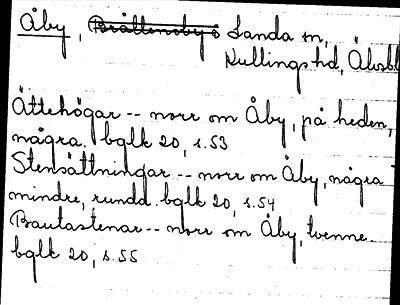 Åby, Landa sn,
Kullings hd, Älvsbl
Ättehögar -- norr om Åby, på heden,
några. bglk 20, s.53
Stensättningar -- norr om Åby, några
mindre, rundd. bglk 20, s.54
Bautastenar -- norr om Åby, tvenne.
bglk 20, s.55